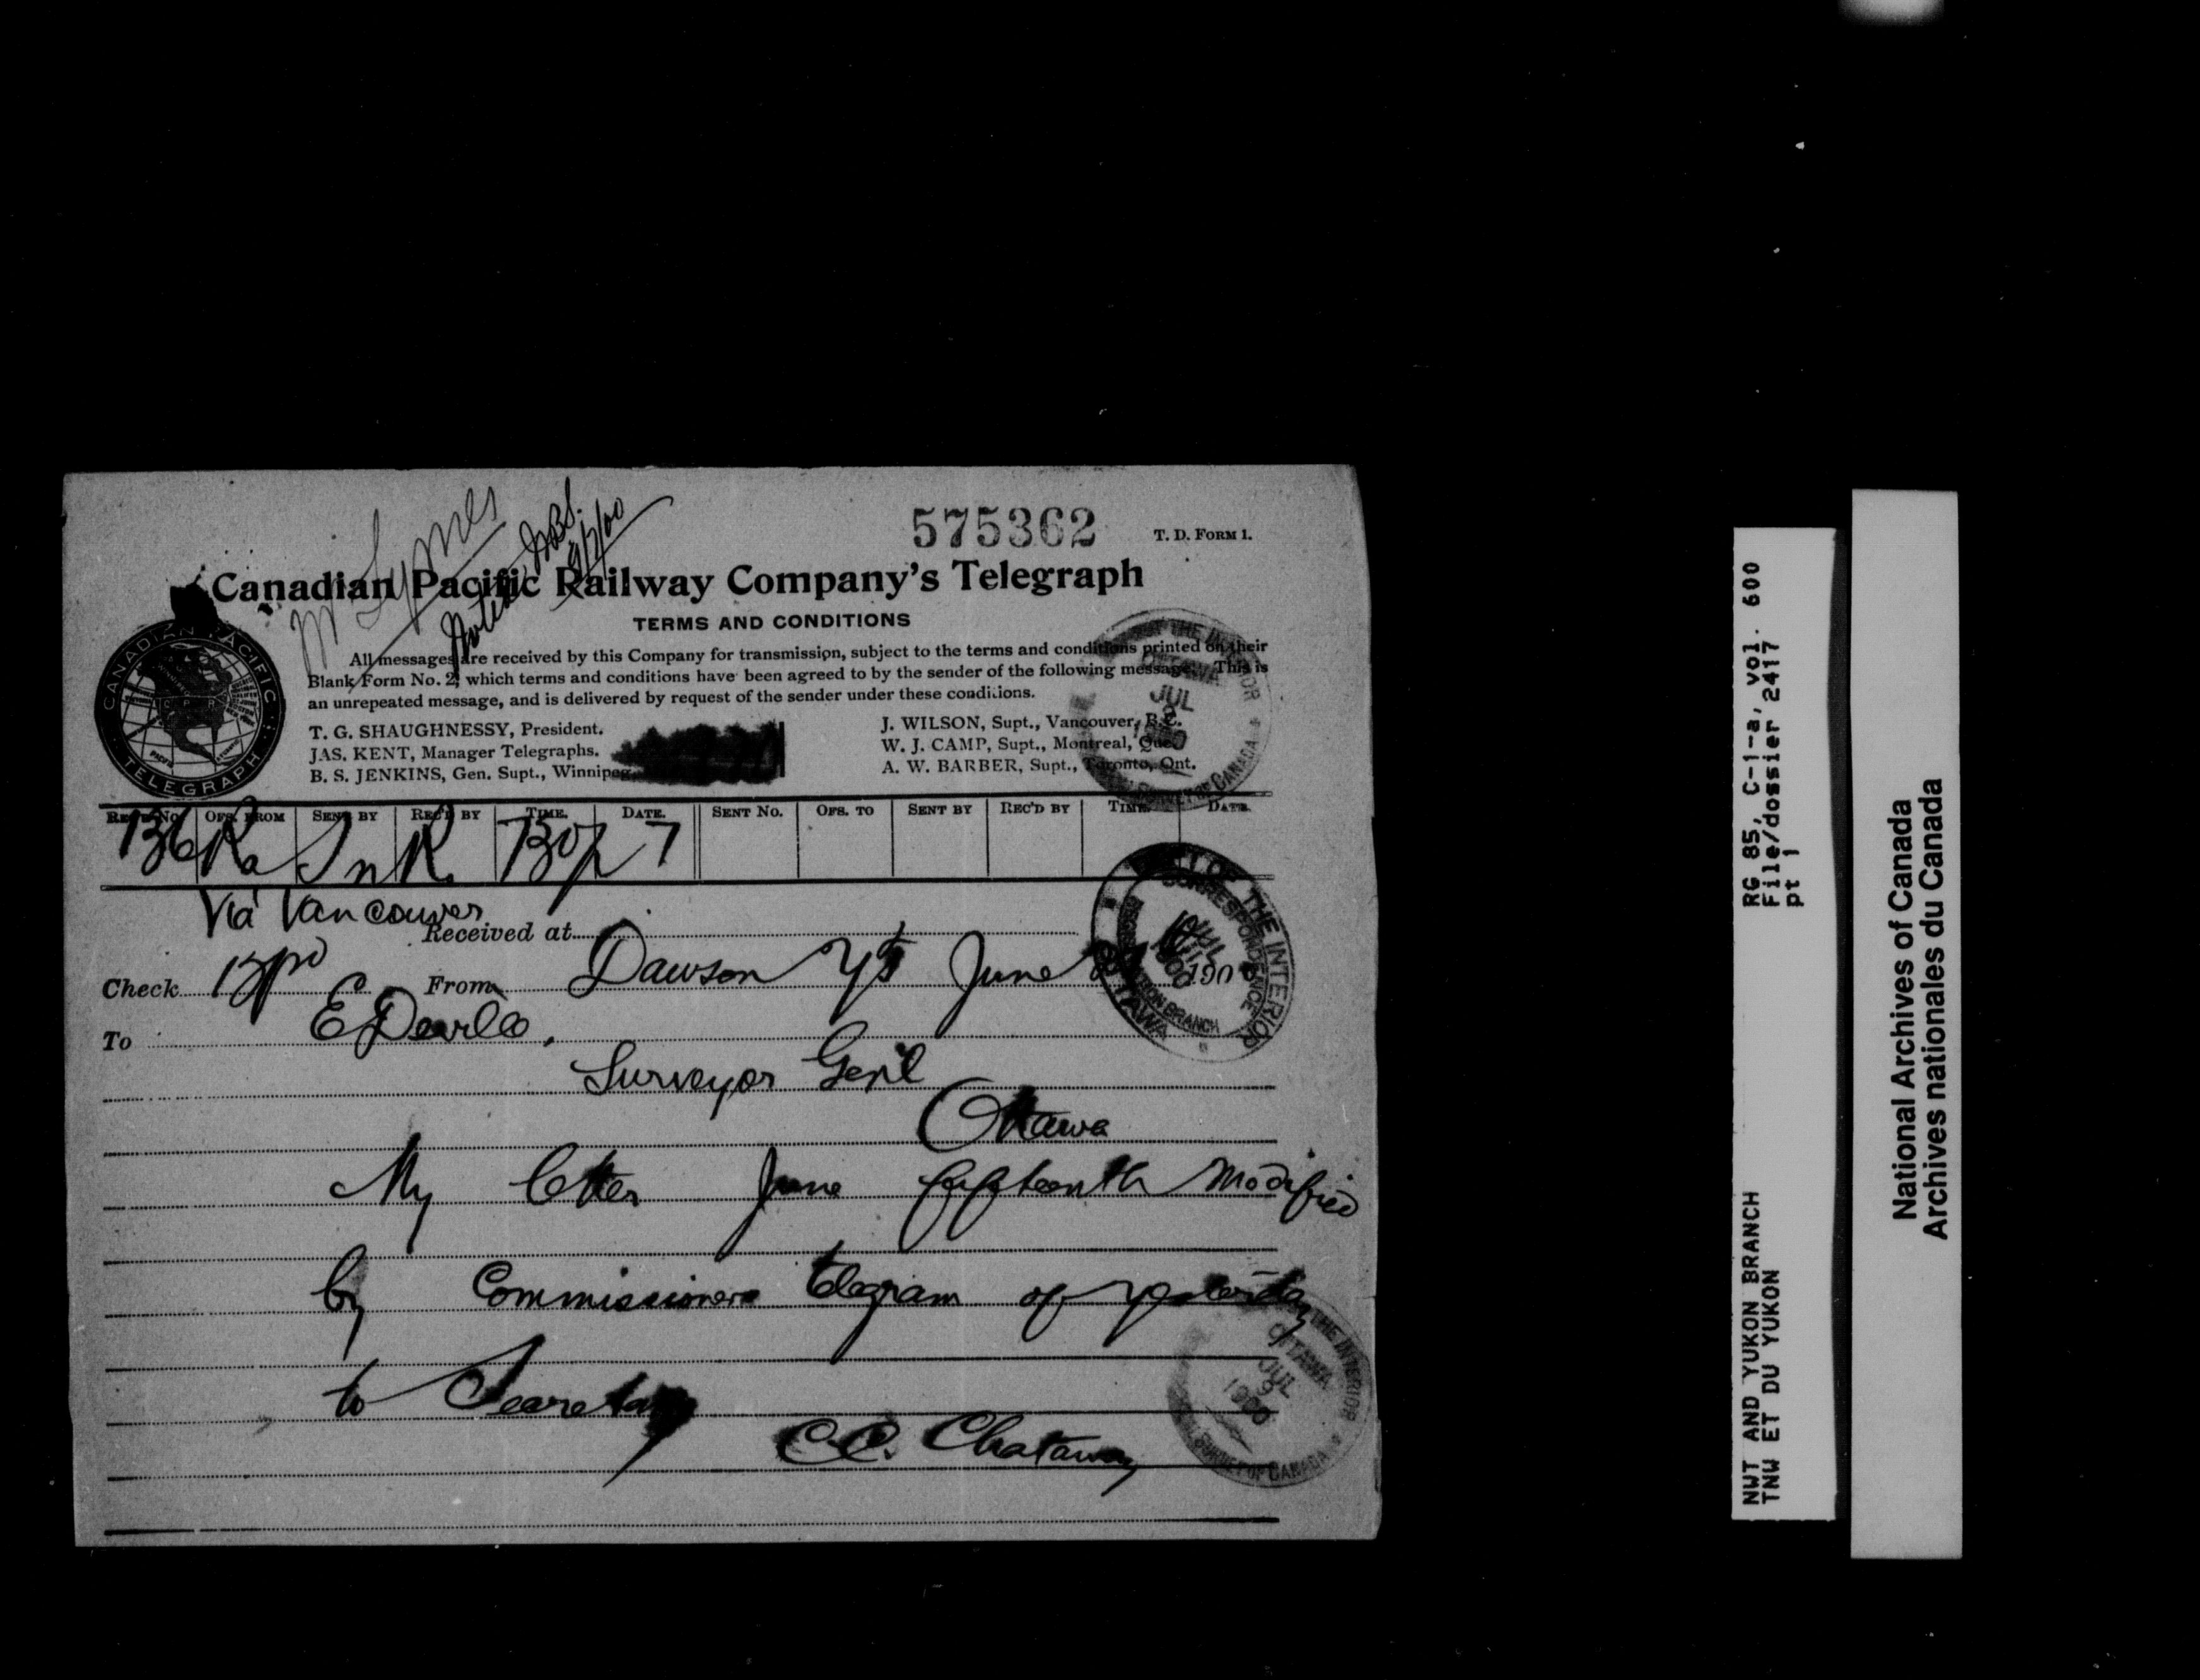 Mr Symes
Noted JBS.
9/7/00
575362
T. D. FORM 1.
Canadian Pacific Railway Company's Telegraph
TERMS AND CONDITIONS
All messages are received by this Company for transmission, subject to the terms and conditions printed on their
Blank Form No. 2, which terms and conditions have been agreed to by the sender of the following message. This is
an unrepeated message, and is delivered by request of the sender under these conditions.
CANADIAN PACIFIC
TELEGRAPH
T. G. SHAUGHNESSY, President.
JAS. KENT, Manager Telegraphs.
B. S. JENKINS, Gen. Supt., Winnipeg
J. WILSON, Supt., Vancouver, B.C.
W. J. CAMP, Supt., Montreal, Que.
A. W. BARBER, Supt., Toronto, Ont.
JUL
OFS. FROM SENT BY REC'D BY TIME. DATE. SENT No. OFS. TO SENT BY REC'D BY TIME. DATE.
136 Ra Jn R. 730p 7
Via Vancouver
Received at
Check 13pd From Dawson YT June 190
To E Deville,
Surveyor Genl
Ottawa
My letter June fifteenth modified
by Commissioners telegram of yesterday
to Secretary
C.C. Chataway
DEPT OF THE INTERIOR
CORRESPONDENCE
REGISTRATION BRANCH
OTTAWA
JUL
1900
THE INTERIOR
OTTAWA
JUL
9
1900
SURVEY OF CANADA
RG 85, C-1-a, vol. 600
File/dossier 2417
pt 1
NWT AND YUKON BRANCH
TNW ET DU YUKON
National Archives of Canada
Archives nationales du Canada